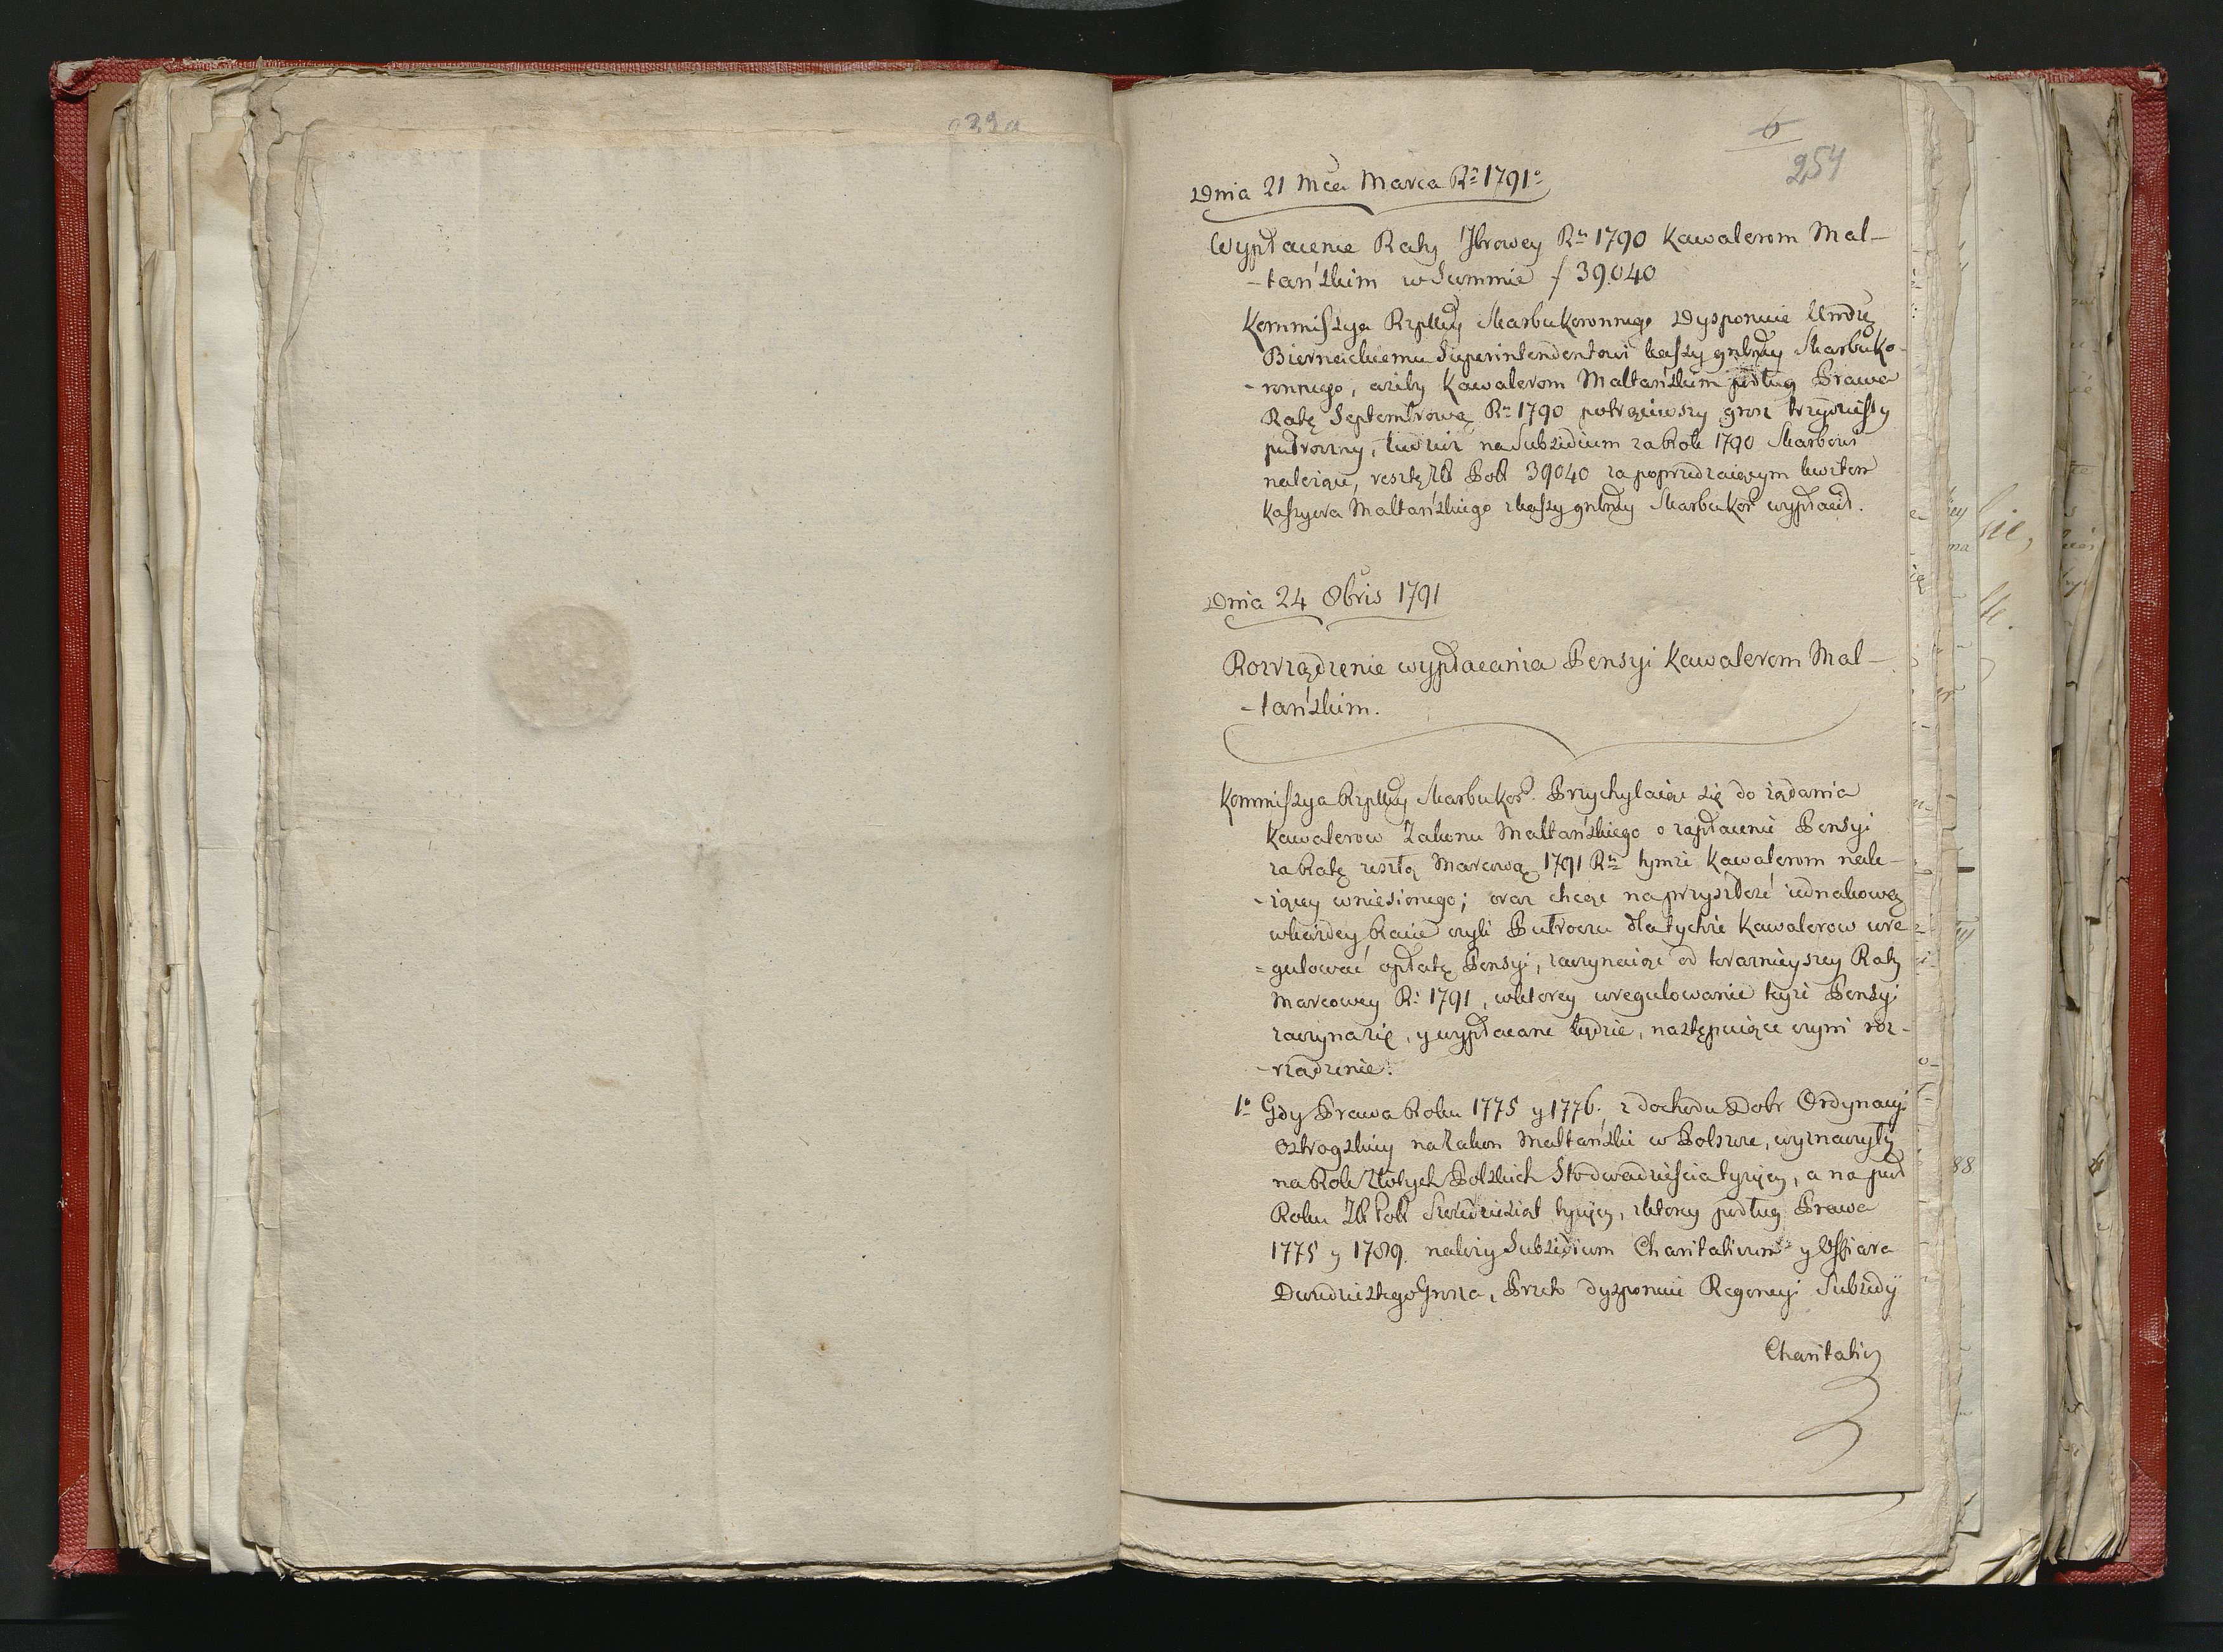 239a
6
254
Dnia 21 Mca Marca R° 1791°
Wypłacenie Raty 7browey Ru 1790 Kawalerom Mal-
-tańskim w Summie f 39.040
Kommissya Rzpltey Skarbu Koronnego Dysponuie Urodz
Biernackiemu Superintendentowi kassy gnlney Skarbu Ko-
-ronnego, ażeby Kawalerom Maltańskim podług Prawa
Ratę Septembrową Ru 1790 potrąciwszy grosz trzydziesty
półroczny, tudzież na Subsidium za Rok 1790 Skarbowi
należące, resztę Zł Pol 39040 za poprzedzaiącym kwitem
Kassyera Maltańskiego z kassy gnlney Skarbu Kor wypłacił.
Dnia 24 8bris 1791
Rozrządzenie wypłacania Pensyi Kawalerom Mal-
-tańskim.
Kommissya Rzpltey Skarbu Kor. Przychylaiąc się do żądania
Kawalerow Zakonu Maltańskiego o zapłacenie Pensyi
za Ratę zeszłą Marcową 1791 Ru tymże Kawalerom nale-
-żącey wniesionego; oraz chcąc na przyszłość iednakową
w każdey Racie czyli Półroczu dla tychże Kawalerow ure
=gulować opłatę Pensyi, zaczynaiąc od teraznieyszey Raty
Marcowey R: 1791, w ktorey uregulowanie teyże Pensyi
zaczyna się, y wypłacane będzie, następuiące czyni roz-
-rządzenie.
1° Gdy Prawa Roku 1775 y 1776. z dochodu Dobr Ordynacyi
Ostrogskiey na Zakon Maltański w Polszcze, wyznaczyły
na Rok Złotych Polskich Sto dwadzieścia tysięcy, a na pół
Roku Zł Pol Sześćdziesiąt tysięcy, z ktorey podług Prawa
1775 y 1789. należy Subsidium Charitativum y Offiara
Dwudziestego Grosza, Przeto dysponuie Regencyi Subsidÿ
Charitativ